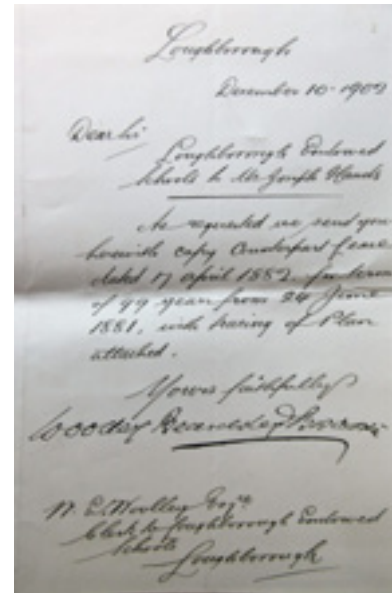 Loughborough
December 10 - 1902
Dear Sir
Loughborough Endowed
Schools to Mr Joseph Hands
As requested we send you
herewith copy Counterpart Lease
dated 17 April 1882 for term
of 99 years from 24 June
1881, with tracing of Plan
attached.
Yours faithfully
W. E. Woolley Esqre
Clerk to Loughborough Endowed
Schools
Loughborough